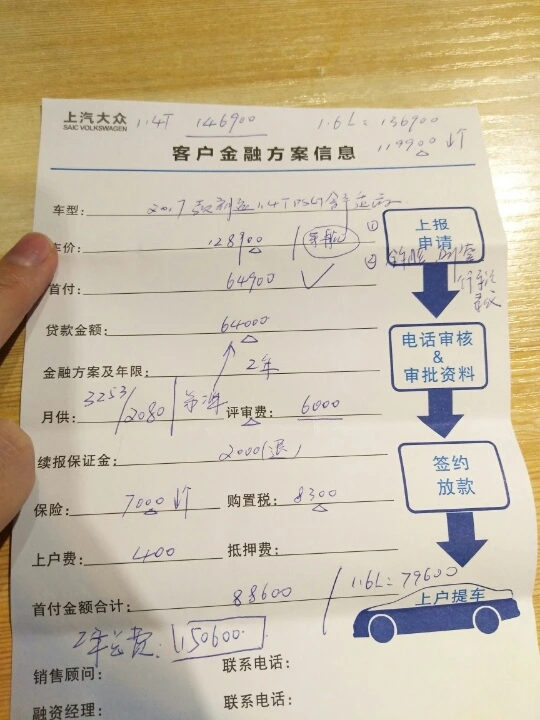 上汽大众
SAIC VOLKSWAGEN
1.4T 146900 1.6L: 136900
119900 ↓个
客户金融方案信息
车型: 2017款 1.4T DSG
车价: 128900 / 导航 ①
上报
申请
②
首付: 64900 ✓
贷款金额: 64000
金融方案及年限: 2年
电话审核
&
审批资料
月供: 3253/2080 评审费: 6000
续报保证金: 2000(退)
签约
放款
保险: 7000 ↓个 购置税: 8300
上户费: 400 抵押费:
首付金额合计: 88600 / 1.6L: 79600
上户提车
2年总费: 150600
销售顾问: 联系电话:
融资经理: 联系电话: